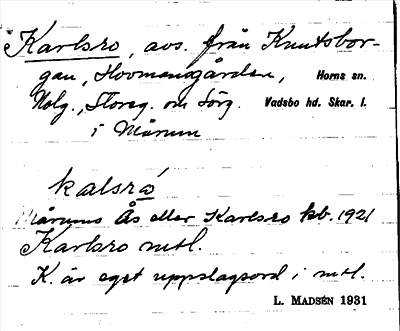 Karlsro, avs. från Knutsbor-
gan, Hovmansgården, Horns sn.
Holg., Storeg. om Sörg. Vadsbo hd. Skar. l.
i Mårum
kalsrå
Mårums Ås eller Karlsro kb. 1921
Karlsro mtl.
K. är eget uppslagsord i mtl.
L. MADSÉN 1931